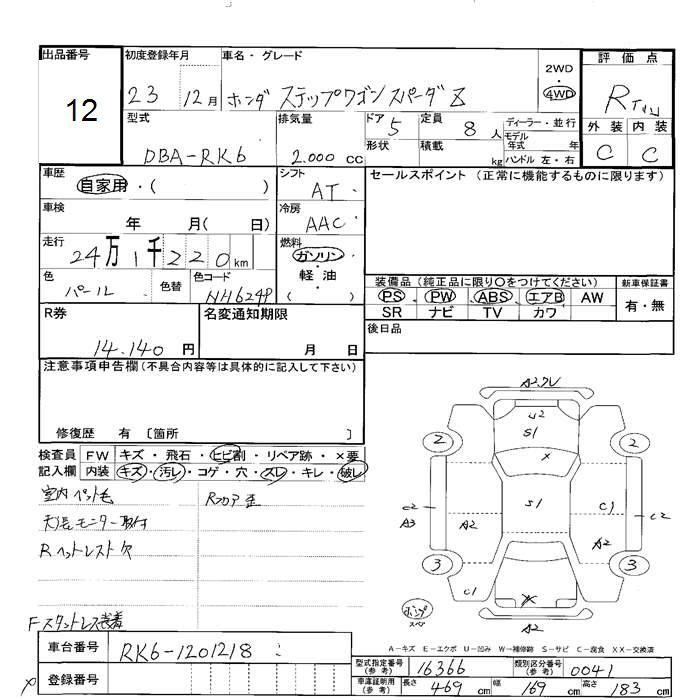 出品番号 初度登録年月 車名・グレード 2WD・4WD 評価点
12 23 12月 ホンダ ステップワゴン スパーダZ R
型式 排気量 ドア 5 定員 8人 ディーラー・並行 外装 内装
DBA-RK6 2.000 cc 形状 積載 kg モデル年式 年 ハンドル 左・右 C C
車歴 自家用・( ) シフト AT セールスポイント(正常に機能するものに限ります)
車検 年 月( 日) 冷房 AAC
走行 24万1千220km 燃料 ガソリン・軽油 ( )
色 パール 色替 色コード NH624P
装備品(純正品に限り○をつけてください) 新車保証書
PS PW ABS エアB AW 有・無
SR ナビ TV カワ
R券 14.140円 名変通知期限 月 日 後日品
注意事項申告欄(不具合内容等は具体的に記入して下さい)
修復歴 有 〔箇所 〕
検査員 FW キズ・飛石・ヒビ割・リペア跡・×要
記入欄 内装 キズ・汚レ・コゲ・穴・スレ・キレ・破レ
室内ペット毛 Rフロア歪
天張モニター取付
Rヘッドレスト欠
A2
U2
S1
2 2
×
C2 A3 S1 C1 C2
A2 A2
3 3
C1
A2
A-キズ E-エクボ U-凹み W-補修跡 S-サビ C-腐食 XX-交換済
車台番号 RK6-1201218
登録番号
型式指定番号(参考) 16366 類別区分番号(参考) 0041
車庫証明用(参考) 長さ 469cm 幅 169cm 高さ 183cm